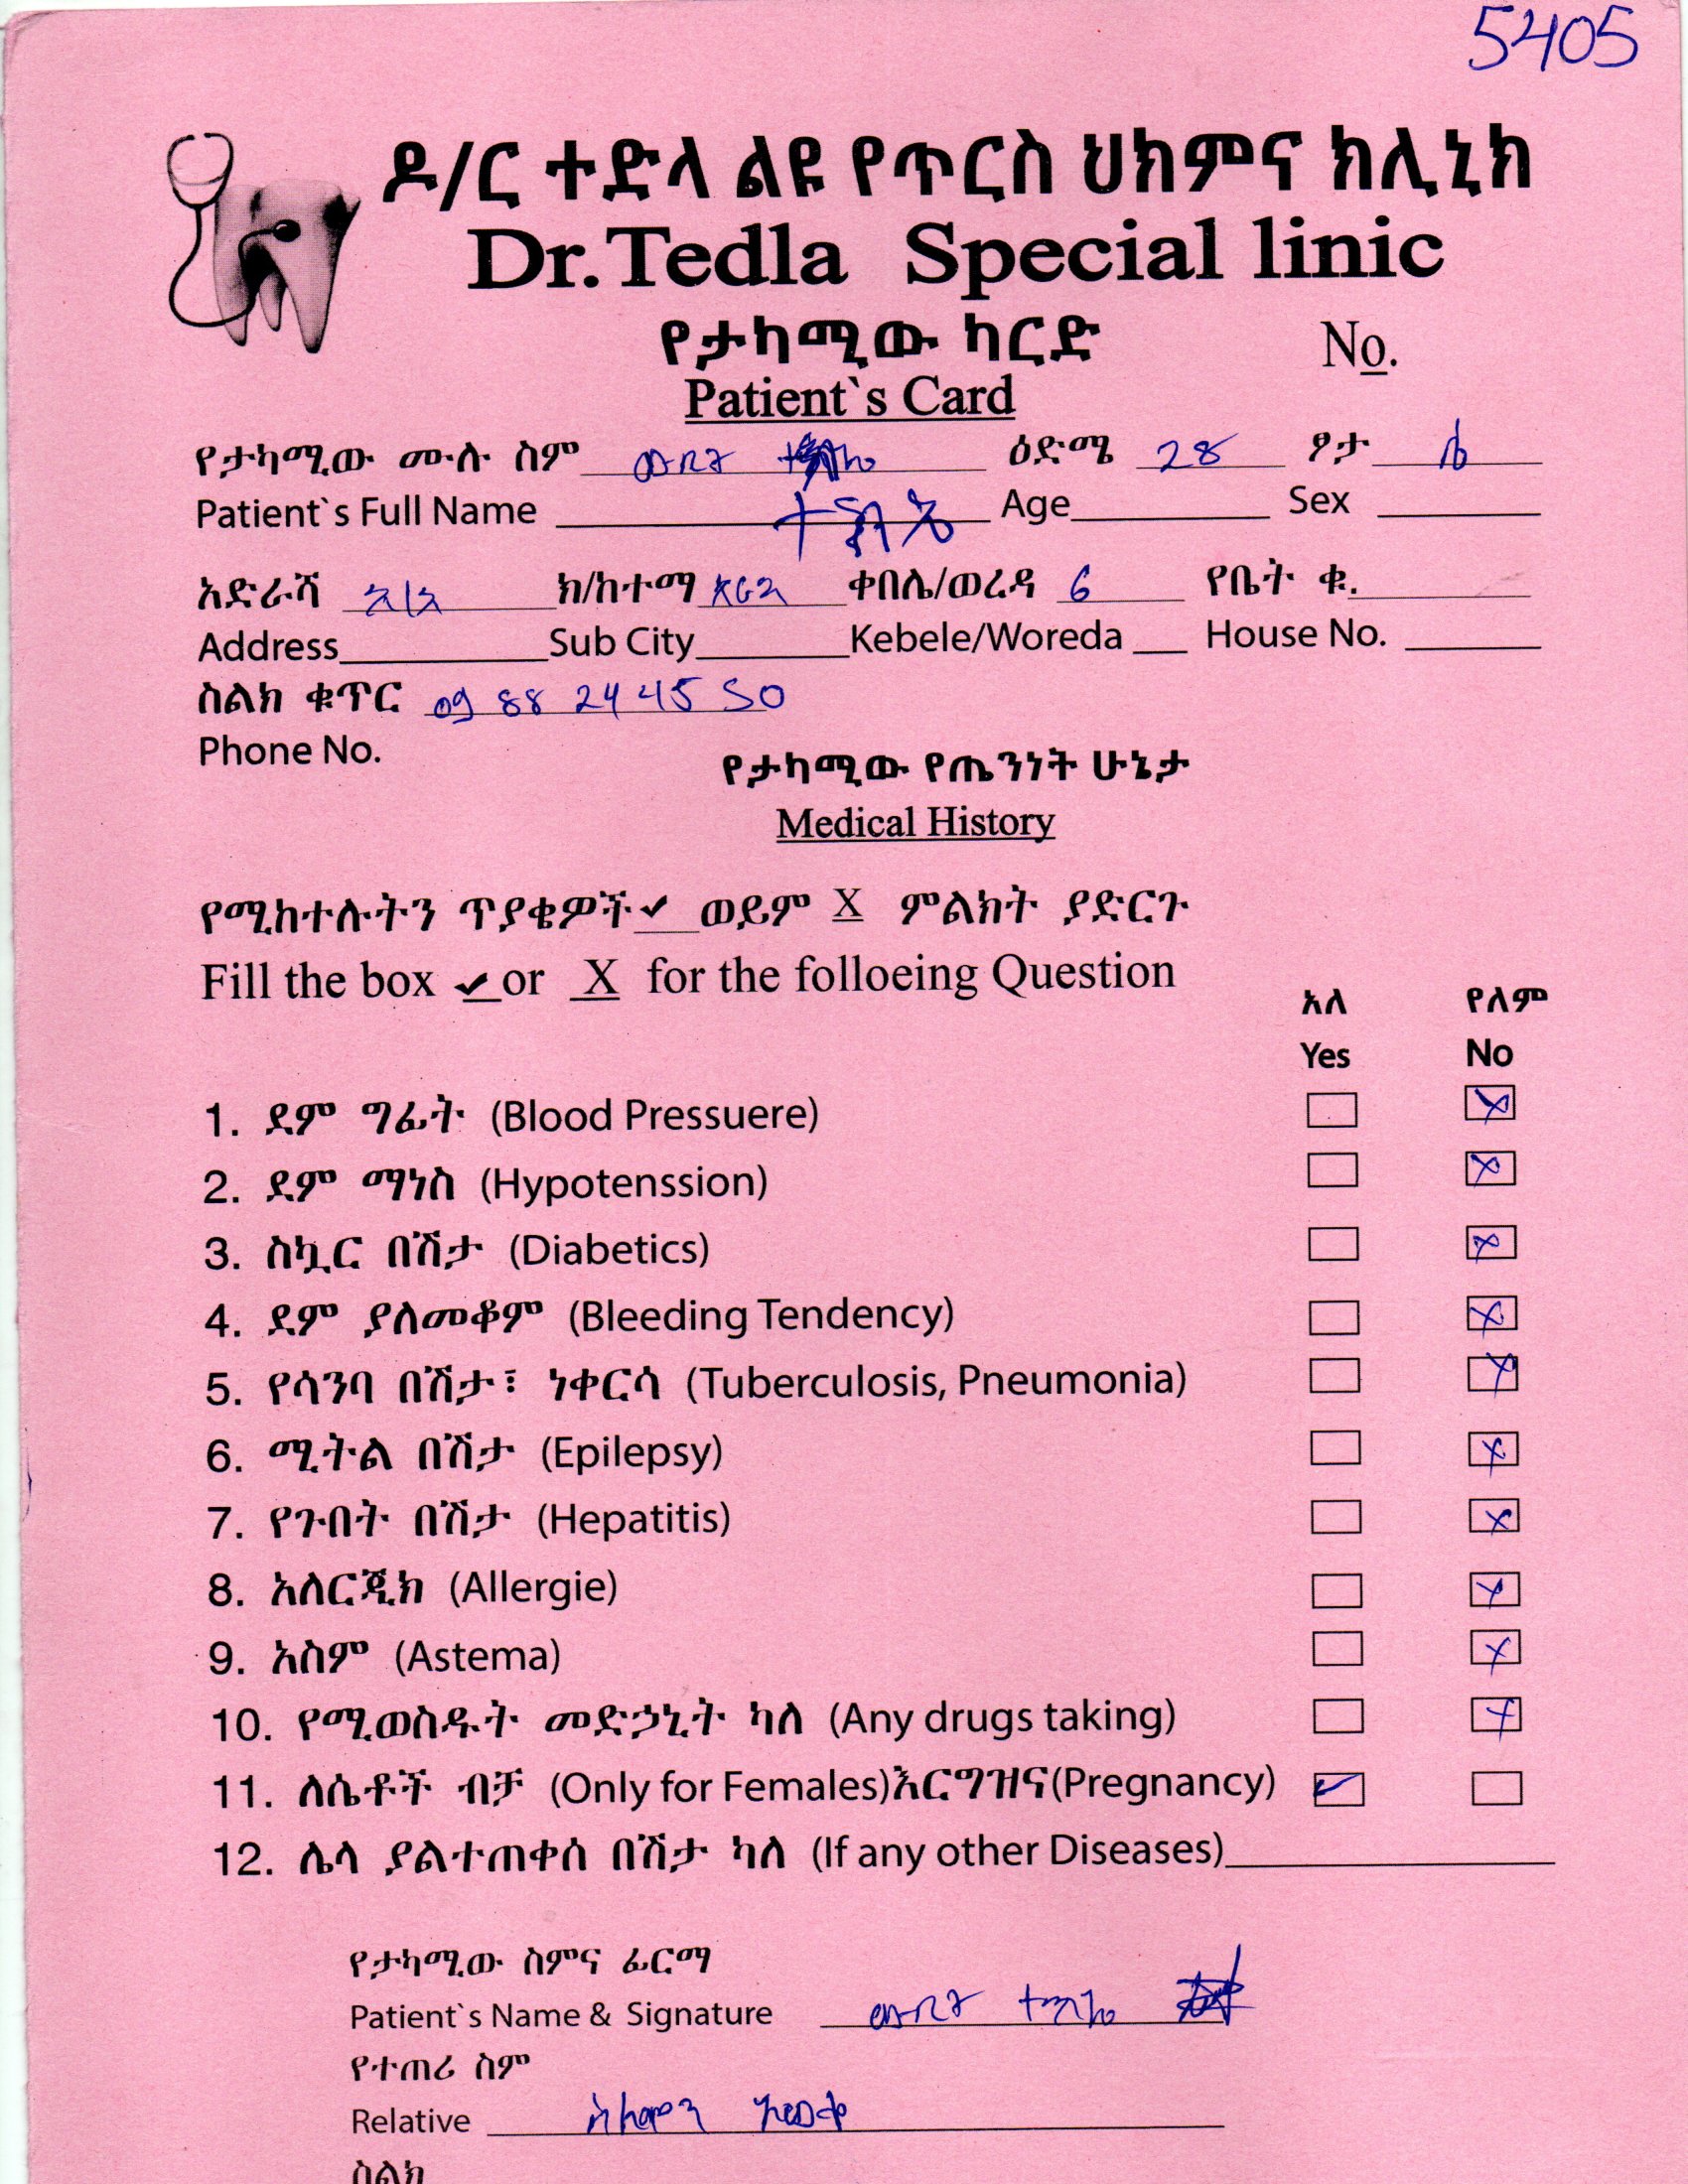 5405
ዶ/ር ተድላ ልዩ የጥርስ ህክምና ክሊኒክ
Dr.Tedla Special linic
የታካሚው ካርድ
No.
Patient`s Card
የታካሚው ሙሉ ስም ዕድሜ 28 ፆታ ሴ
Patient`s Full Name Age Sex
አድራሻ አ/አ ክ/ከተማ ቀበሌ/ወረዳ 6 የቤት ቁ.
Address Sub City Kebele/Woreda House No.
ስልክ ቁጥር 09 88 24 45 50
Phone No.
የታካሚው የጤንነት ሁኔታ
Medical History
የሚከተሉትን ጥያቄዎች ✔ ወይም X ምልክት ያድርጉ
Fill the box ✔ or X for the folloeing Question
አለ የለም
Yes No
1. ደም ግፊት (Blood Pressuere) X
2. ደም ማነስ (Hypotenssion) X
3. ስኳር በሽታ (Diabetics) X
4. ደም ያለመቆም (Bleeding Tendency) X
5. የሳንባ በሽታ፣ ነቀርሳ (Tuberculosis, Pneumonia) X
6. ሚትል በሽታ (Epilepsy) X
7. የጉበት በሽታ (Hepatitis) X
8. አለርጂክ (Allergie) X
9. አስም (Astema) X
10. የሚወስዱት መድኃኒት ካለ (Any drugs taking) X
11. ለሴቶች ብቻ (Only for Females)እርግዝና(Pregnancy) ✔
12. ሌላ ያልተጠቀሰ በሽታ ካለ (If any other Diseases)
የታካሚው ስምና ፊርማ
Patient`s Name & Signature
የተጠሪ ስም
Relative
ስልክ